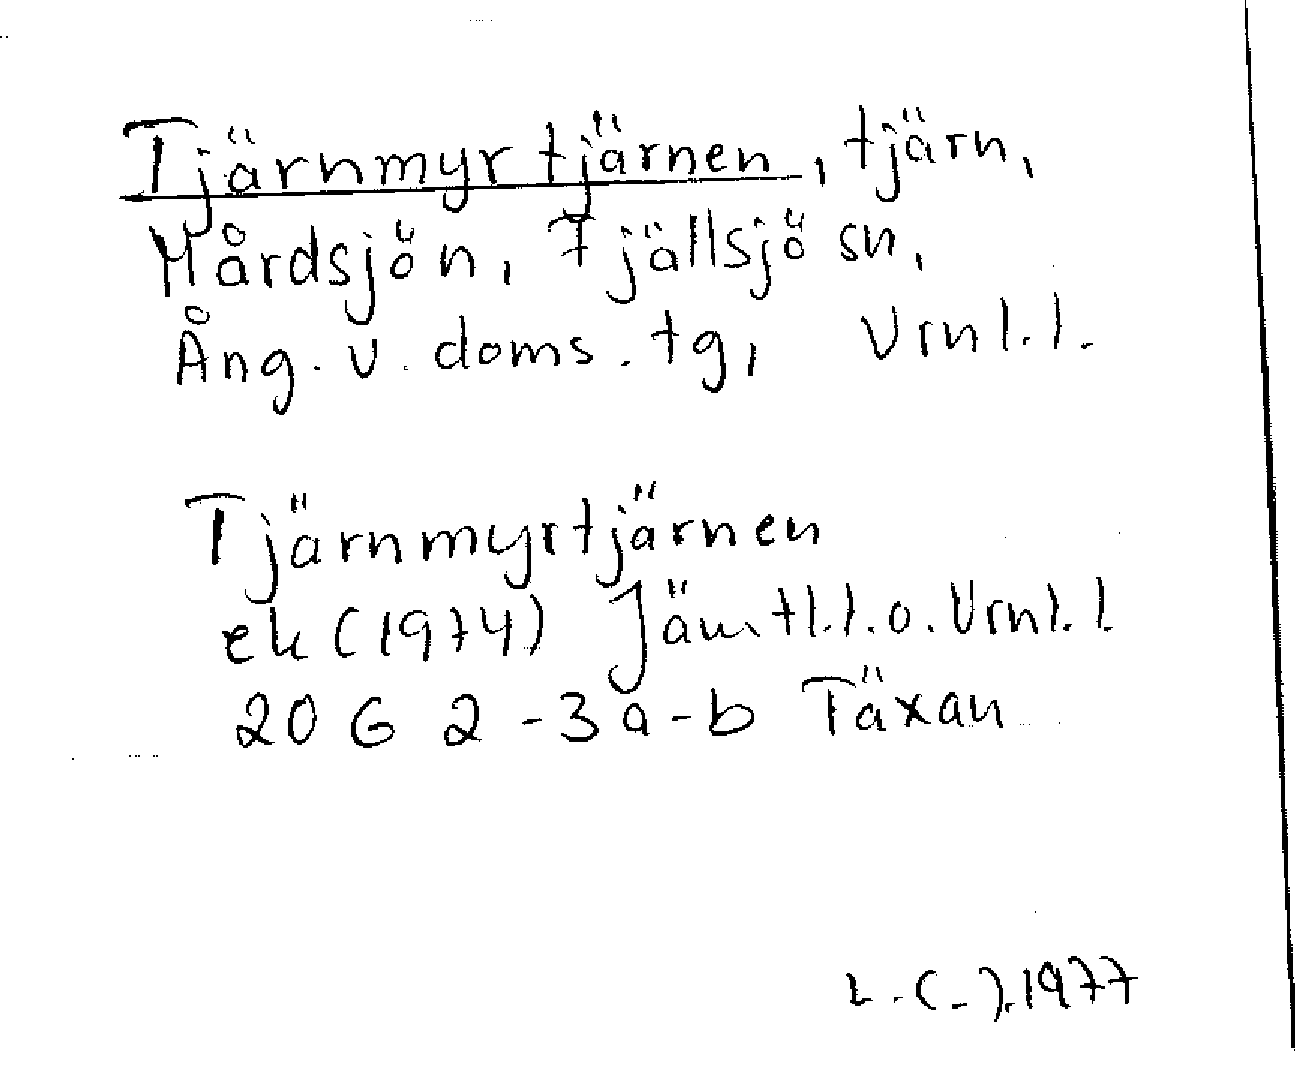 Tjärnmyrtjärnen, tjärn,
Mårdsjön, Fjällsjö sn,
Ång. v. doms. tg, Vrnl.l.
Tjärnmyrtjärnen
ek (1974) Jämtl.l.o. Vrnl.l.
20 G 2-3 a-b Täxan
L.C-).1977